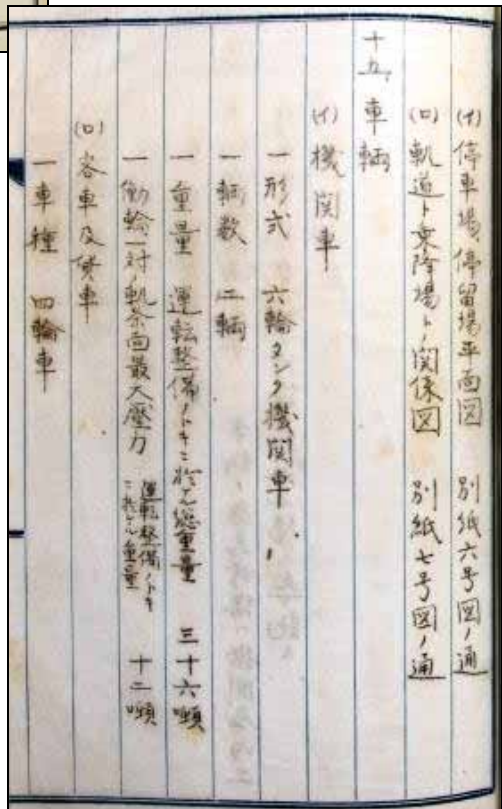 (イ)停車場、停留場平面図 別紙六号図ノ通
(ロ)軌道ト乗降場トノ関係図 別紙七号図ノ通
十五、車輌
(イ)機関車
一形式 六輪タンク機関車
一輌数 二輌
一重量 運転整備ノトキニ於ケル総重量 三十六噸
一働輪一対ノ軌条面最大壓力 運転整備ノトキニ於ケル重量 十二噸
(ロ)客車及貨車
一車種 四輪車